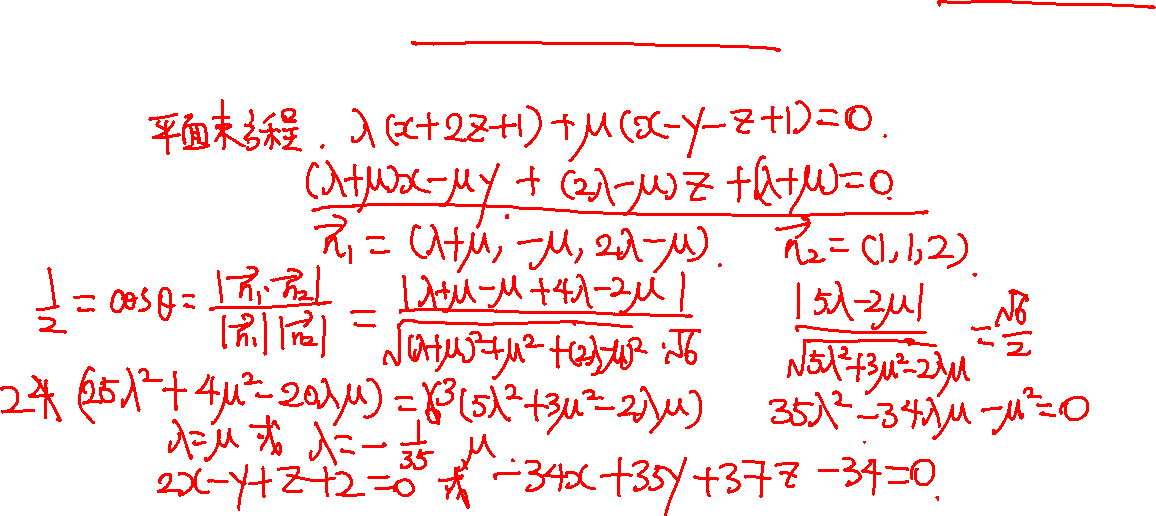 平面束方程. λ(x+2z+1)+μ(x-y-z+1)=0.
(λ+μ)x-μy+(2λ-μ)z+(λ+μ)=0
n₁→=(λ+μ, -μ, 2λ-μ). n₂→=(1,1,2).
1/2=cosθ=|n₁→·n₂→|/(|n₁→||n₂→|)=|λ+μ-μ+4λ-2μ|/(√((λ+μ)²+μ²+(2λ-μ)²)·√6) |5λ-2μ|/√(5λ²+3μ²-2λμ)=√6/2
2(25λ²+4μ²-20λμ)=3(5λ²+3μ²-2λμ) 35λ²-34λμ-μ²=0
λ=μ 或 λ=-1/35 μ
2x-y+z+2=0 或 -34x+35y+37z-34=0.